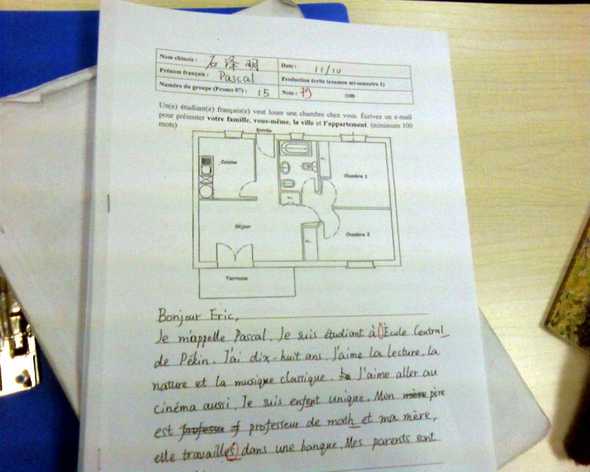 Nom chinois : 石泽明
Date : 11/10
Prénom français : Pascal
Production écrite (examen mi-semestre 1)
Numéro du groupe (Promo 07) : 15
Note : /100
Un(e) étudiant(e) français(e) veut louer une chambre chez vous. Écrivez un e-mail
pour présenter votre famille, vous-même, la ville et l'appartement. (minimum 100
mots)
Entrée
Cuisine
Chambre 1
Séjour
Chambre 2
Terrasse
Bonjour Eric,
Je m'appelle Pascal. Je suis étudiant à École Central
de Pékin. J'ai dix-huit ans. J'aime la lecture, la
nature et la musique classique. J'aime aller au
cinéma aussi. Je suis enfent unique. Mon père
est professeur de math et ma mère,
elle travailles dans une banque. Mes parents sont